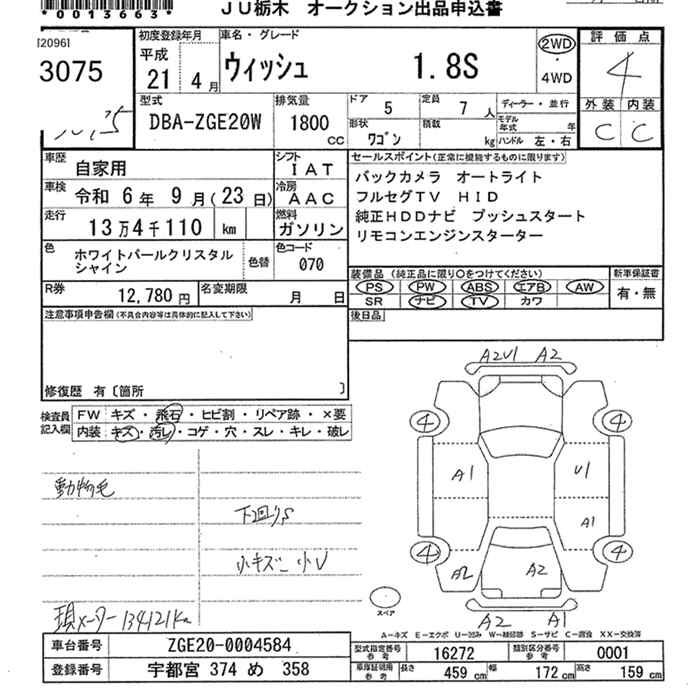 *0013663*
JU栃木 オークション出品申込書
120961
3075
初度登録年月
平成
21 4月
車名・グレード
ウィッシュ 1.8S
2WD
・
4WD
評価点
4
外装 内装
C C
型式
DBA-ZGE20W
排気量
1800
CC
ドア 5
定員 7人
形状 ワゴン
積載 kg
ディーラー・並行
モデル年式 年
ハンドル 左・右
車歴
自家用
シフト
IAT
車検
令和 6年 9月(23日)
冷房
AAC
走行
13万4千110 km
燃料
ガソリン
色
ホワイトパールクリスタル
シャイン
色替
色コード
070
R券
12,780円
名変期限
月 日
セールスポイント(正常に機能するものに限ります)
バックカメラ オートライト
フルセグTV HID
純正HDDナビ プッシュスタート
リモコンエンジンスターター
装備品(純正品に限り○をつけてください)
PS PW ABS エアB AW
SR ナビ TV カワ
新車保証書
有・無
後日品
注意事項申告欄(不具合内容等は具体的に記入して下さい)
修復歴 有〔箇所 〕
検査員
記入欄
FW キズ・飛石・ヒビ割・リペア跡・×要
内装 キズ・汚レ・コゲ・穴・スレ・キレ・破レ
動物毛
下回りS
小キズ 小U
現メーター134121Km
A2U1 A2
4 4
A1 U1
A1
4 4
A2 A2
A2 A1
スペア
A-キズ E-エクボ U-凹み W-補修跡 S-サビ C-腐食 XX-交換済
車台番号 ZGE20-0004584
登録番号 宇都宮 374 め 358
型式指定番号
参考
16272
類別区分番号
参考
0001
車庫証明用
参考
長さ 459cm 幅 172cm 高さ 159cm